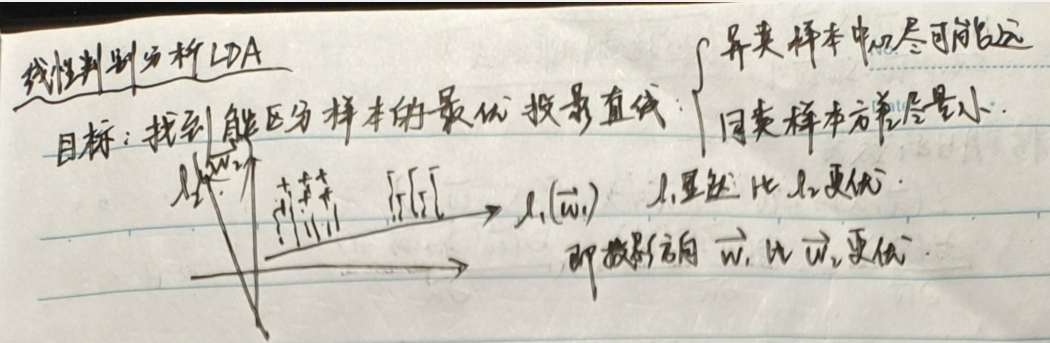 线性判别分析LDA
目标：找到能区分样本的最优投影直线：
异类样本中心尽可能远
同类样本方差尽量小.
l₂ w⃗₂
l₁(w⃗₁) l₁显然比l₂更优.
即投影方向 w⃗₁ 比 w⃗₂ 更优.